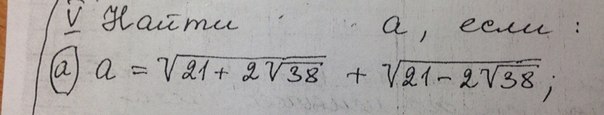 V Найти а, если:
а) a = √(21 + 2√38) + √(21 - 2√38);